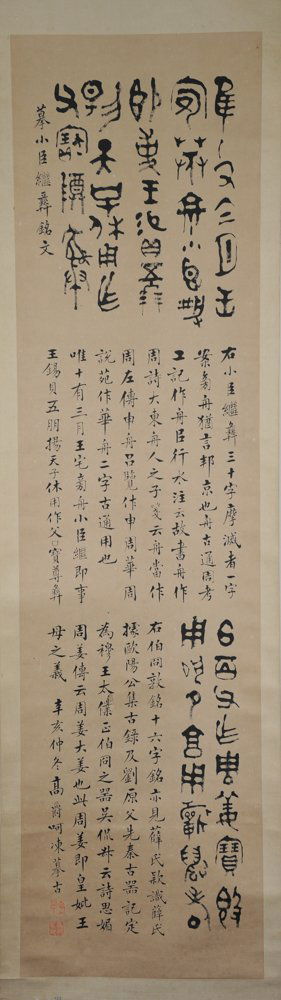 隹十又三月王
舟小臣
即事王易貝五
天子休用乍
父寶尊彝
摹小臣繼彝銘文
右小臣繼彝三十字摩滅者一字
案舟猶言邦京也舟古通周考
工記作舟臣行水注云故書舟作
周詩大東舟人之子箋云舟當作
周左傳申舟呂覽作申周華周
說苑作華舟二字古通用也
唯十有三月王宅舟小臣繼即事
王錫貝五朋揚天子休用作父寶尊彝
白乍周姜寶敦
用夙夕享用蘄萬壽
右伯冏敦銘十六字銘亦見薛氏款識薛氏
據歐陽公集古錄及劉原父先秦古器記定
為穆王太僕正伯冏之器吳侃叔云詩思媚
周姜傳云周姜大姜也此周姜即皇妣王
母之義 辛亥仲冬高爵呵凍摹古